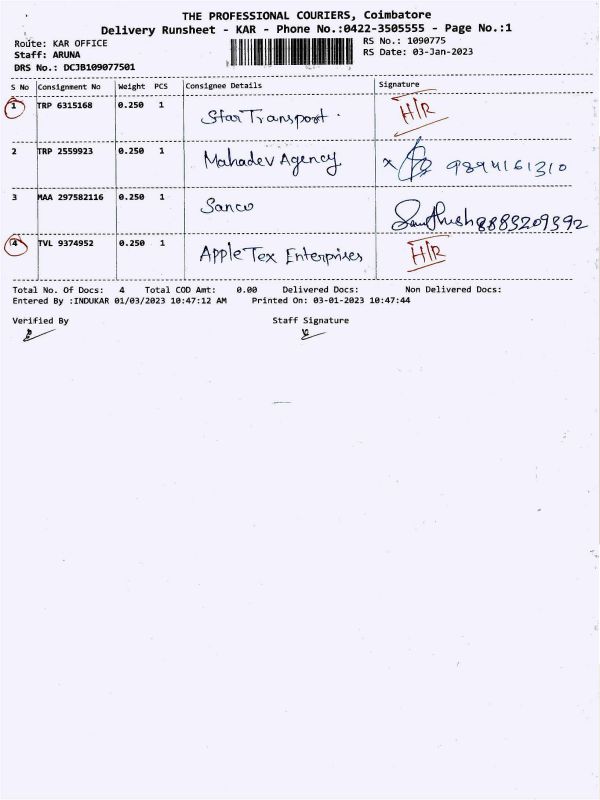 THE PROFESSIONAL COURIERS, Coimbatore
Delivery Runsheet - KAR - Phone No.:0422-3505555 - Page No.:1
Route: KAR OFFICE
RS No.: 1090775
Staff: ARUNA
RS Date: 03-Jan-2023
DRS No.: DCJB109077501
S No Consignment No Weight PCS Consignee Details Signature
1 TRP 6315168 0.250 1 Star Transport. H/R
2 TRP 2559923 0.250 1 Mahadev Agency x 9894161310
3 MAA 297582116 0.250 1 Sanco Santhush 8883209392
4 TVL 9374952 0.250 1 Apple Tex Enterprises H/R
Total No. Of Docs: 4 Total COD Amt: 0.00 Delivered Docs: Non Delivered Docs:
Entered By :INDUKAR 01/03/2023 10:47:12 AM Printed On: 03-01-2023 10:47:44
Verified By Staff Signature